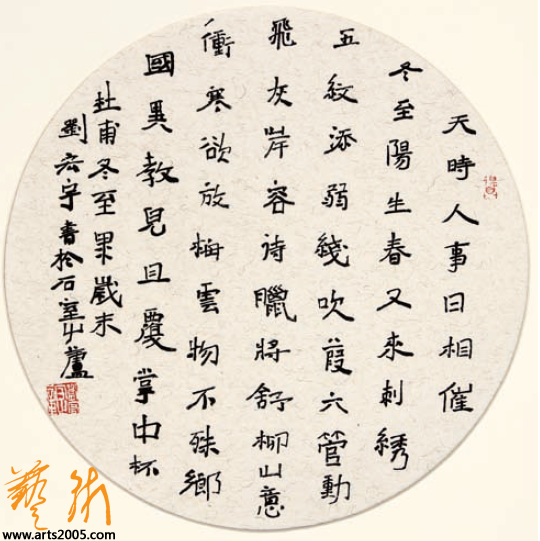 天時人事日相催
冬至陽生春又來刺綉
五紋添弱綫吹葭六管動
飛灰岸容待臘將舒柳山意
衝寒欲放梅雲物不殊鄉
國異教兒且覆掌中杯
杜甫冬至歲末
劉宏宇書於石室山廬
藝術
www.arts2005.com